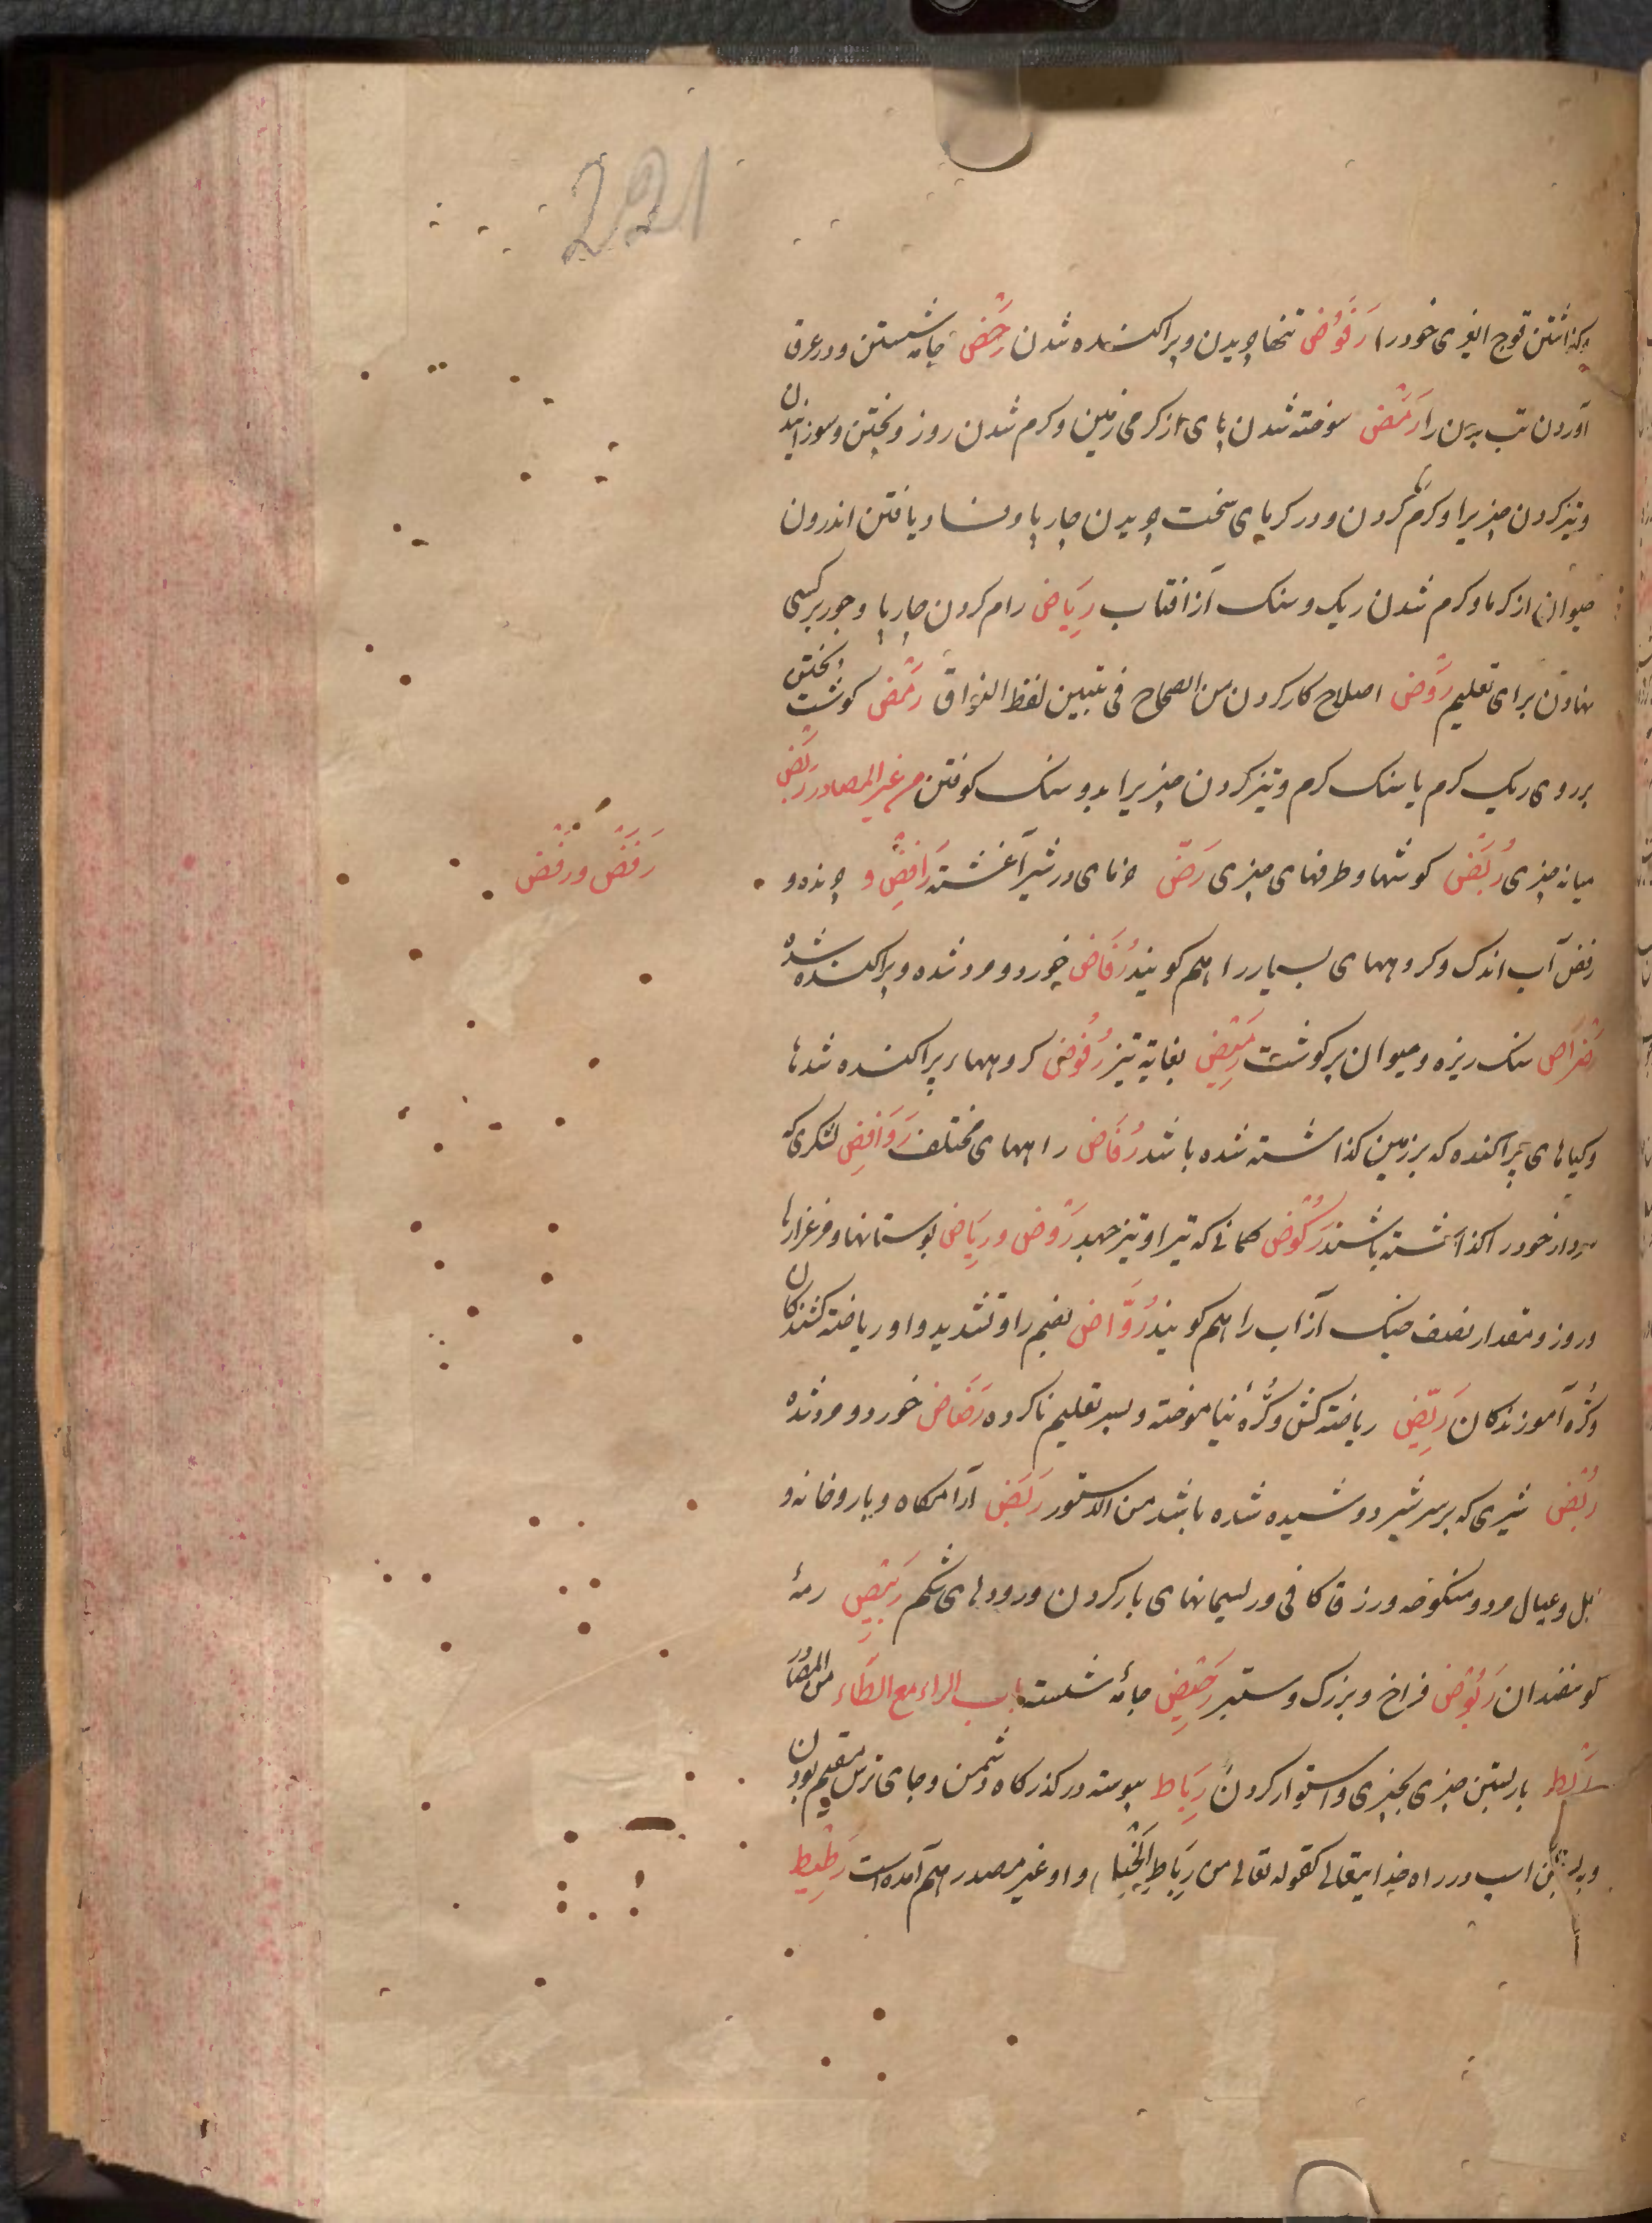 221
بگذاشتن قوچ انبوی خود را رَفُوض تنها چریدن و پراکنده شدن رَحْض جامه شستن و در عرق
آوردن تب بدن را رَمَض سوخته شدن پای از کرمی زمین و کرم شدن روز و پختن و سوزانیدن
و تیز کردن چیزیرا و کرم کردن و در کرمای سخت چریدن چارپا و فساد یافتن اندرون
حیوان از کرما و کرم شدن ریک و سنک از افتاب رِیَاض رام کردن چارپا و جور بر کسی
نهادن برای تعلیم رَوْض اصلاح کار کردن من الصحاح فی تبیین لفظ رَمْض کوشت پختن
بر روی ریک کرم یا سنک کرم و تیز کردن چیزیرا بدو سنک کوفتن من غیر المصادر رَبَض
میانه چیزی رُبُض کوشها و طرفهای چیزی رَضّ خرمای در شیر آغشته رَافِض و چرنده و
رَفَض و رَفْض
رفض آب اندک و کروههای بسیار را هم کویند رُفَاض خورد و مرد شده و پراکنده شده
رَضْرَاض سنک ریزه و حیوان پر کوشت رَمِیْض بغایة تیز رُفُوض کروهها پراکنده شدها
و کیاهای پراکنده که بر زمین کذاشته شده باشد رُفَاض راههای مختلف رَوَافِض لشکری که
سردار خود را کذاشته باشند رَکُوض کمانی که تیر او تیز جهد رَوْض و رِیَاض بوستانها و مرغزارها
و روز و مقدار نصف خیک از آب را هم کویند رُوَّاض بضم را و تشدید واو ریاضة کشندکان
و کُرّه آموزندکان رَیِّض ریاضة کش و کُرّهٔ نیاموخته و پسر تعلیم ناکرده رَضَاض خورد و مرد شده
رُبْض شیری که بر سر شیر دوشیده شده باشد من الدستور رَبَض آرامکاه و بارو خانه و
اهل و عیال مرد و منکوحه و رزق کافی و ریسمانهای بار کردن و رودهای شکم رَبِیْض رمهٔ
کوسفندان رَبُوْض فراخ و بزرک و ستبر رَحِیْض جامهٔ شسته باب الراء مع الطاء من المصادر
رَبْط باز بستن چیزی بچیزی و استوار کردن رِبَاط پیوسته در کذرکاه دشمن و جای ترس مقیم بودن
و بستن اسب در راه خدایتعالی کقوله تعالی من رِبَاطِ الْخَیْلِ و او غیر مصدر هم آمده است رَطِیْط